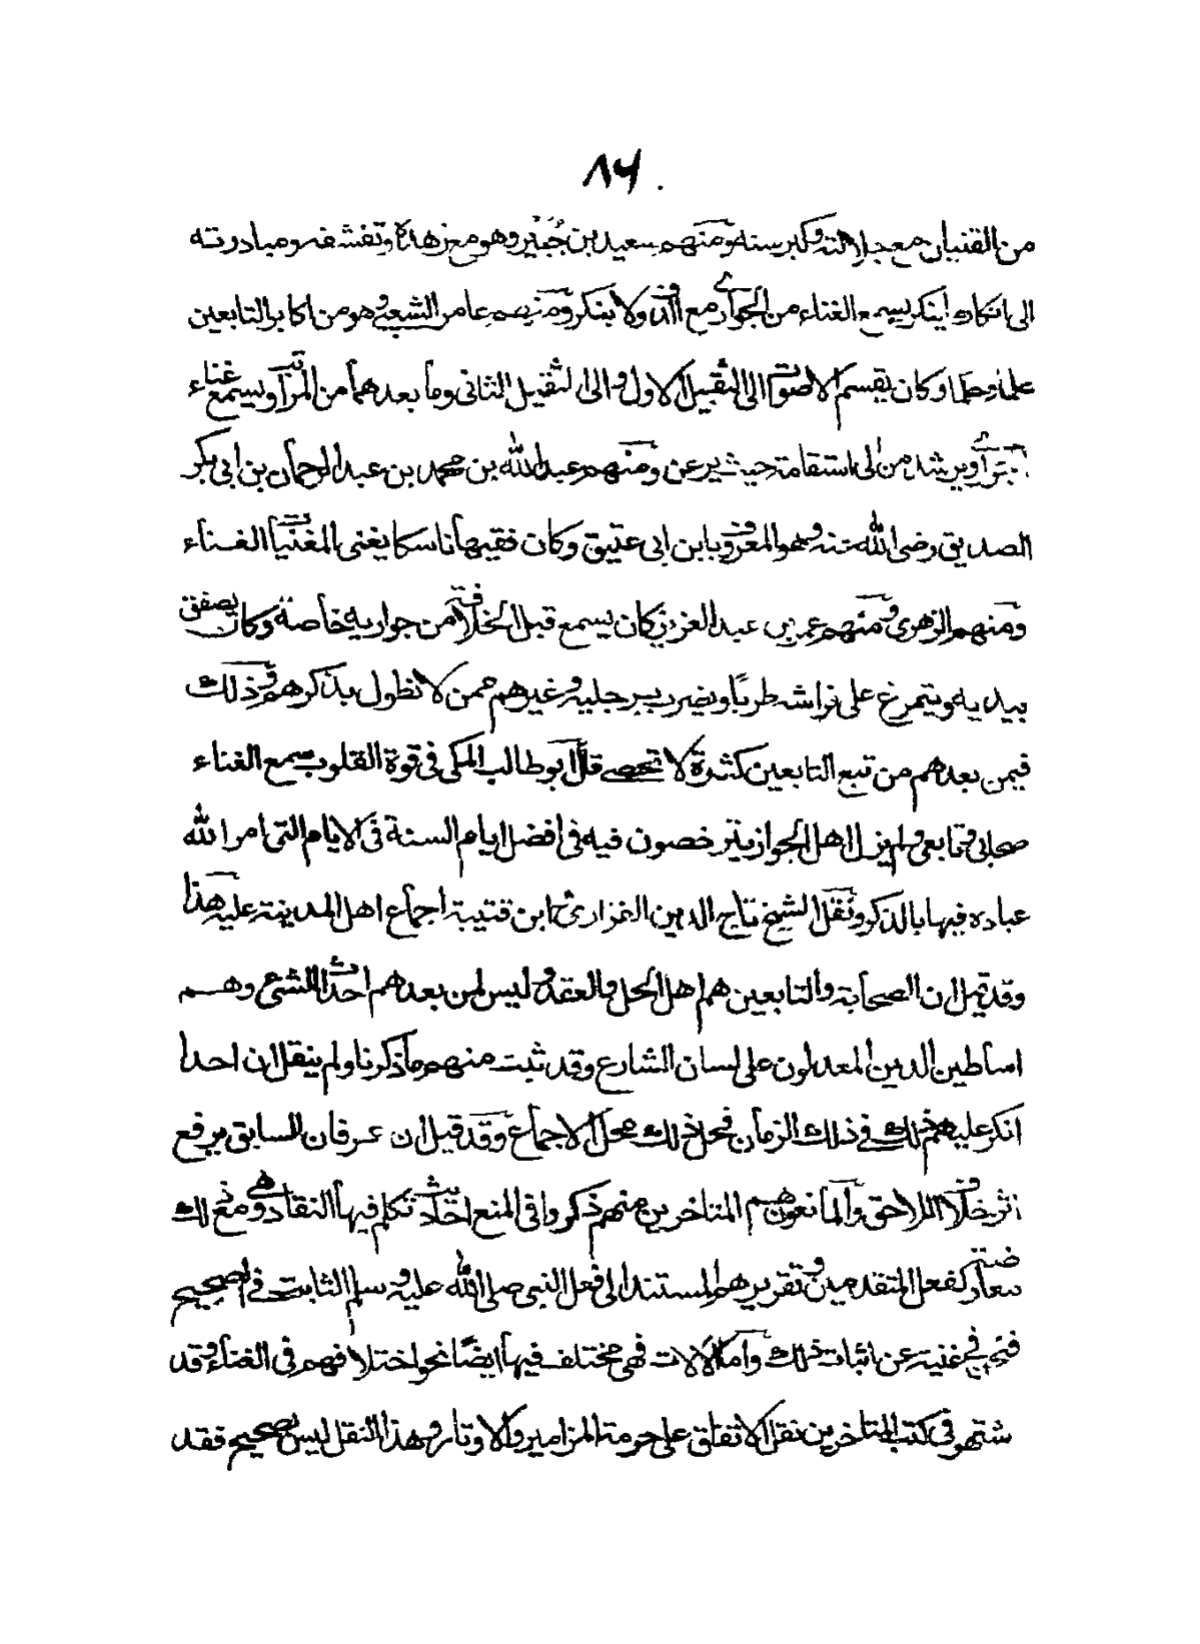 ٨٦
من القنيان مع جلالته وكبر سنه ومنهم سعيد بن جُبَير وهو مع زهادة وتقشفه ومبادرته
الى انكار ما ينكر يسمع الغناء من الجوارى مع الدف ولا ينكر ومنهم عامر الشعبى وهو من اكابر التابعين
علما وعملا وكان يقسم الاصوات الى الثقيل الاول والى الثقيل الثانى وما بعدهما من المراتب ويسمع غناء
ويرشد من الى استقامة حيث يرعن ومنهم عبد الله بن محمد بن عبد الرحمان بن ابى بكر
الصديق رضى الله عنه وهو المعروف بابن ابى عتيق وكان فقيها ناسكا يغنى المغنيات الغناء
ومنهم الزهرى ومنهم عمر بن عبد العزيز كان يسمع قبل الخلافة من جواريه خاصة وكان يصفق
بيديه ويتمرغ على فراشه طربًا ويضرب برجليه وغيرهم ممن لا نطول بذكرهم وذلك
فيمن بعدهم من تبع التابعين كثرة لا تحصى قال ابو طالب المكى فى قوة القلوب سمع الغناء
صحابى وتابعى ولم يزل اهل الحجاز يترخصون فيه فى افضل ايام السنة فى الايام التى امر الله
عباده فيها بالذكر ونقل الشيخ تاج الدين الفزارى ابن قتيبة اجماع اهل المدينة عليه هذا
وقد قيل ان الصحابة والتابعين هم اهل الحل والعقد وليس لمن بعدهم احداث الشئ وهم
اساطين الدين المعدلون على لسان الشارع وقد ثبت منهم ما ذكرنا ولم ينقل ان احدا
انكر عليهم ذلك فى ذلك الزمان فحل ذلك محل الاجماع وقد قيل ان عرفان السابق يرفع
اثر خلاف اللاحق والمانعون هم المتاخرين منهم ذكروا فى المنع احاديث تكلم فيها النقاد وهى مع ذلك
معارضة كفعل المتقدمين وتقريرهم المستند الى فعل النبى صلى الله عليه وسلم الثابت فى الصحيح
فنحن فى غنية عن اثبات ذلك واما الالات فهى مختلف فيها ايضًا نحو اختلافهم فى الغناء وقد
شتهر فى كتب المتاخرين نقل الاتفاق على حرمة المزامير والاوتار وهذا النقل ليس بصحيح فقد